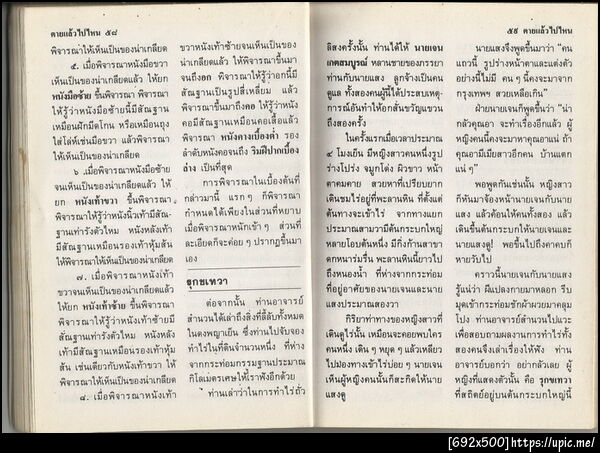 ตายแล้วไปไหน ๕๘
พิจารณาให้เห็นเป็นของน่าเกลียด
๕. เมื่อพิจารณาหนังมือขวา
เห็นเป็นของน่าเกลียดแล้ว ให้ยก
หนังมือซ้าย ขึ้นพิจารณา พิจารณา
ให้รู้ว่าหนังมือซ้ายนี้มีสัณฐาน
เหมือนฝักมีดโกน หรือเหมือนถุง
ใส่โล่ห์เช่นมือขวา แล้วพิจารณา
ให้เห็นเป็นของน่าเกลียด
๖. เมื่อพิจารณาหนังมือซ้าย
จนเห็นเป็นของน่าเกลียดแล้ว ให้
ยก หนังเท้าขวา ขึ้นพิจารณา
พิจารณาให้รู้ว่าหนังนิ้วเท้ามีสัณ-
ฐานเท่ารังตัวไหม หนังหลังเท้า
มีสัณฐานเหมือนรองเท้าหุ้มส้น
ให้พิจารณาให้เห็นเป็นของน่าเกลียด
๗. เมื่อพิจารณาหนังเท้า
ขวาจนเห็นเป็นของน่าเกลียดแล้ว
ให้ยก หนังเท้าซ้าย ขึ้นพิจารณา
พิจารณาให้รู้ว่าหนังนิ้วเท้าซ้ายมี
สัณฐานเท่ารังตัวไหม หนังหลัง
เท้ามีสัณฐานเหมือนรองเท้าหุ้ม
ส้น เช่นเดียวกับหนังเท้าขวา ให้
พิจารณาให้เห็นเป็นของน่าเกลียด
๘. เมื่อพิจารณาหนังเท้า
ขวาหนังเท้าซ้ายจนเห็นเป็นของ
น่าเกลียดแล้ว ให้พิจารณาขึ้นมา
จนถึงอก พิจารณาให้รู้ว่าอกนี้มี
สัณฐานเป็นรูปสี่เหลี่ยม แล้ว
พิจารณาขึ้นมาถึงคอ ให้รู้ว่าหนัง
คอมีสัณฐานเหมือนคอเสื้อแล้ว
พิจารณา หนังคางเบื้องต่ำ รอง
ลำดับหนังคอจนถึง ริมฝีปากเบื้อง
ล่าง เป็นที่สุด
การพิจารณาในเบื้องต้นที่
กล่าวมานี้ แรก ๆ ก็พิจารณา
กำหนดได้เพียงในส่วนที่หยาบ
เมื่อพิจารณาหนักเข้า ๆ ส่วนที่
ละเอียดก็จะค่อย ๆ ปรากฏขึ้นมา
เอง
รุกขเทวา
ต่อจากนั้น ท่านอาจารย์
สำนวนได้เล่าถึงสิ่งที่ลี้ลับทั้งหมด
ในดงพญาเย็น ซึ่งท่านไปจับจอง
ทำไร่ในที่ดินจำนวนหนึ่ง ที่ห่าง
จากกระท่อมกรรมฐานประมาณ
กิโลเมตรเศษให้เราฟังอีกด้วย
ท่านเล่าว่าในการทำไร่ถั่ว
๕๙ ตายแล้วไปไหน
ลิสงครั้งนั้น ท่านได้ให้ นายเจน
เกตสมบูรณ์ หลานชายของภรรยา
ท่านกับนายแสง ลูกจ้างเป็นคน
ดูแล ทั้งสองคนผู้นี้ได้ประสบเหตุ-
การณ์อันทำให้อกสั่นขวัญแขวน
ถึงสองครั้ง
ในครั้งแรกเมื่อเวลาประมาณ
๔ โมงเย็น มีหญิงสาวคนหนึ่งรูป
ร่างโปร่ง จมูกโด่ง ผิวขาว หน้า
ตาคมคาย สวยหาที่เปรียบยาก
เดินชมไร่อยู่ที่พะลานหิน ที่ตั้งแต่
ต้นทางจะเข้าไร่ จากทางแยก
ประมาณสามวามีต้นกระบกใหญ่
หลายโอบต้นหนึ่ง มีกิ่งก้านสาขา
ดกหนาร่มรื่น พะลานหินนี้ยาวไป
ถึงหนองน้ำ ที่ห่างจากกระท่อม
ที่อยู่อาศัยของนายเจนและนาย
แสงประมาณสองวา
กิริยาท่าทางของหญิงสาวที่
เดินดูไร่นั้น เหมือนจะคอยพบใคร
คนหนึ่ง เดิน ๆ หยุด ๆ แล้วเหลียว
ไปมองทางเข้าไร่บ่อย ๆ นายเจน
เห็นผู้หญิงคนนั้นก็สะกิดให้นาย
แสงดู
นายแสงจึงพูดขึ้นมาว่า “คน
แถวนี้ รูปร่างหน้าตาและแต่งตัว
อย่างนี้ไม่มี คน ๆ นี้คงจะมาจาก
กรุงเทพฯ สวยเหลือเกิน”
ฝ่ายนายเจนก็พูดขึ้นว่า “น่า
กลัวคุณอา จะทำเรื่องอีกแล้ว ผู้
หญิงคนนี้คงจะมาหาคุณอาแน่ ถ้า
คุณอามีเมียสาวอีกคน บ้านแตก
แน่ ๆ”
พอพูดกันเช่นนั้น หญิงสาว
ก็หันมาจ้องหน้านายเจนกับนาย
แสง แล้วค้อนให้คนทั้งสอง แล้ว
เดินขึ้นต้นกระบกให้นายเจนและ
นายแสงดู! พอขึ้นไปถึงคาคบก็
หายวับไป
คราวนี้นายเจนกับนายแสง
รู้แน่ว่า ผีแปลงกายมาหลอก รีบ
มุดเข้ากระท่อมชักผ้าผวยมาคลุม
โปง ท่านอาจารย์สำนวนไปแวะ
เพื่อสอบถามผลงานการทำไร่ทั้ง
สองคนจึงเล่าเรื่องให้ฟัง ท่าน
อาจารย์บอกว่า อย่ากลัวเลย ผู้
หญิงที่แสดงตัวนั้น คือ รุกขเทวา
ที่สถิตย์อยู่บนต้นกระบกใหญ่นี้
[692x500]https://upic.me/